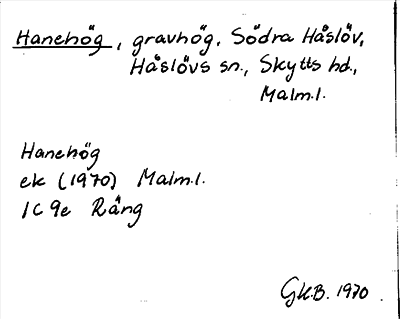 Hanehög, gravhög, Södra Håslöv,
Håslövs sn., Skytts hd.,
Malm.l.
Hanehög
ek (1970) Malm.l.
1C 9e Räng
GK.B. 1970.